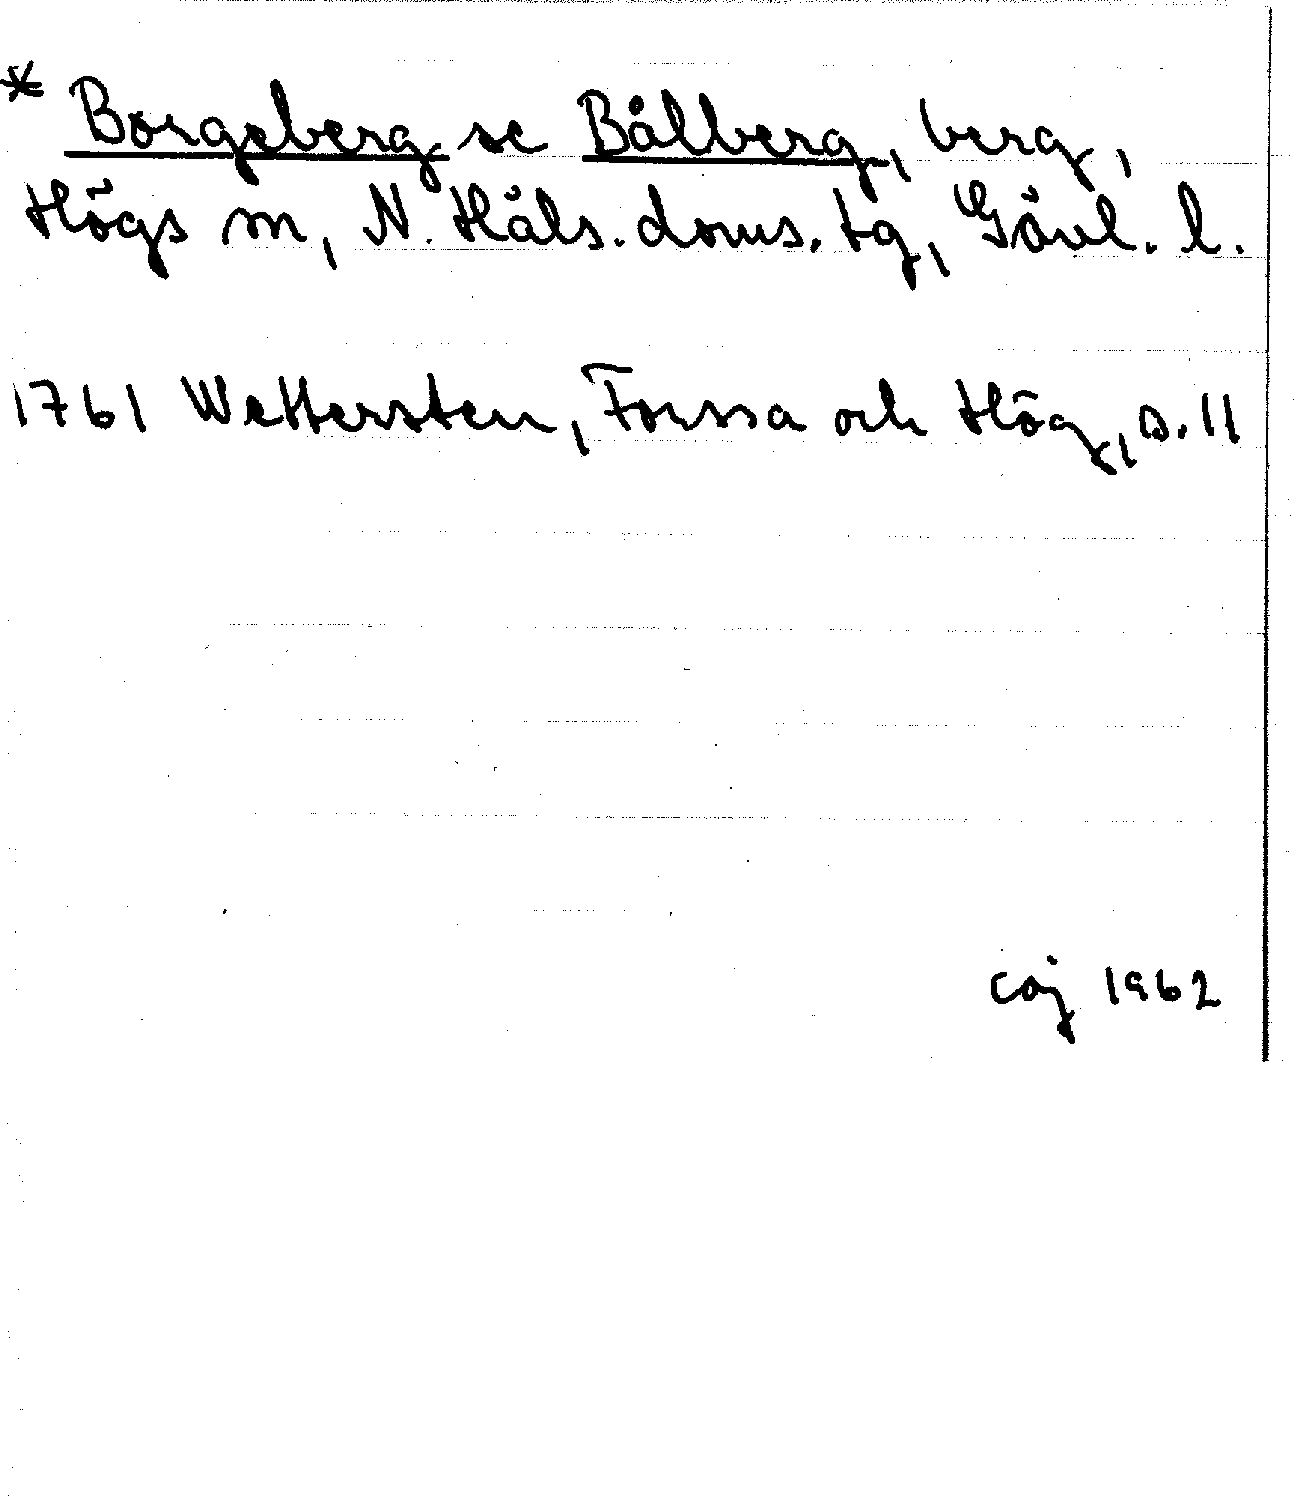 * Borgeberg se Bålberg, berg,
Högs sn, N. Häls. doms. tg, Gävl. l.
1761 Wettersten, Forssa och Hög, s. 11
caj 1962